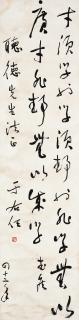 才須學也學須靜也非學無以
廣才非靜無以成學
聽德先生法正
于右任